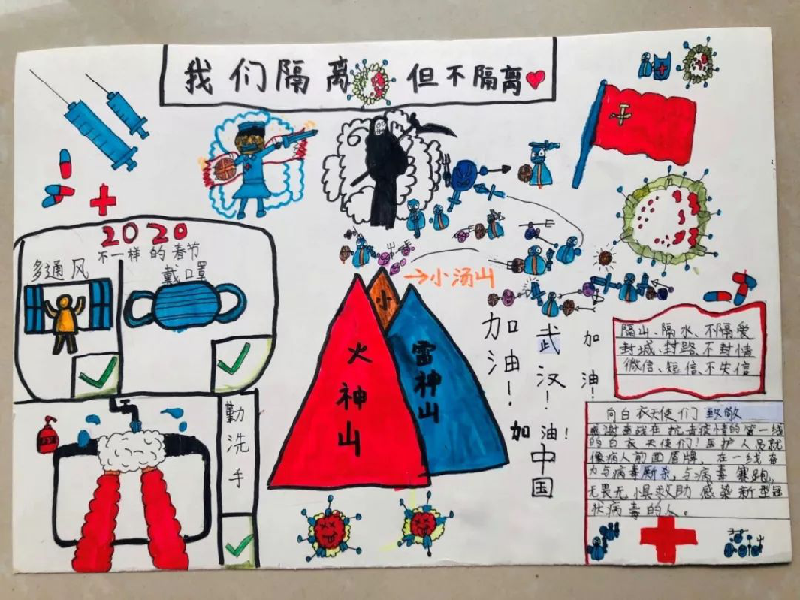 我们隔离 但不隔离
2020
不一样的春节
多通风
戴口罩
勤洗手
小
→小汤山
火神山
雷神山
加油!
武汉!
加油!
加油!
中国
隔山、隔水、不隔爱
封城、封路、不封情
微信、短信、不失信
向白衣天使们 致敬
感谢奋战在抗击疫情的第一线
的白衣天使们!医护人员就
像病人前面盾牌 在一线奋
力与病毒厮杀,与病毒赛跑,
无畏无惧救助感染新型冠
状病毒的人。